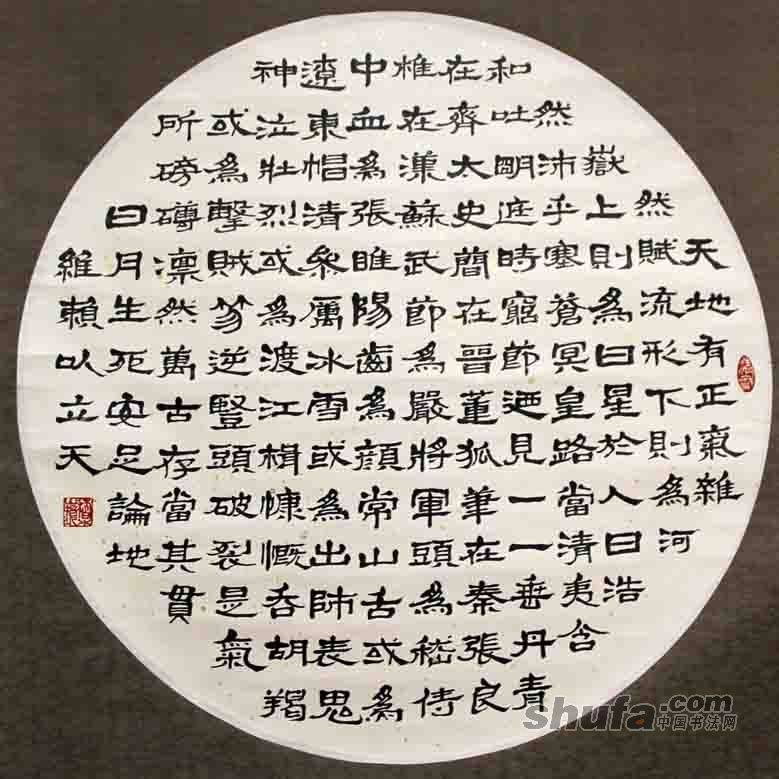 天地有正氣雜
然賦流形下則為河
嶽上則為日星於人曰浩
然沛乎塞蒼冥皇路當清夷含
和吐明庭時窮節迺見一一垂丹青
在齊太史簡在晉董狐筆在秦張良
椎在漢蘇武節為嚴將軍頭為嵇侍
中血為張睢陽齒為顏常山舌或為
遼東帽清操厲冰雪或為出師表鬼
神泣壯烈或為渡江楫慷慨吞胡羯
或為擊賊笏逆豎頭破裂是氣
所磅礴凜然萬古存當其貫
日月生死安足論地
維賴以立天
shufa.com
中国书法网